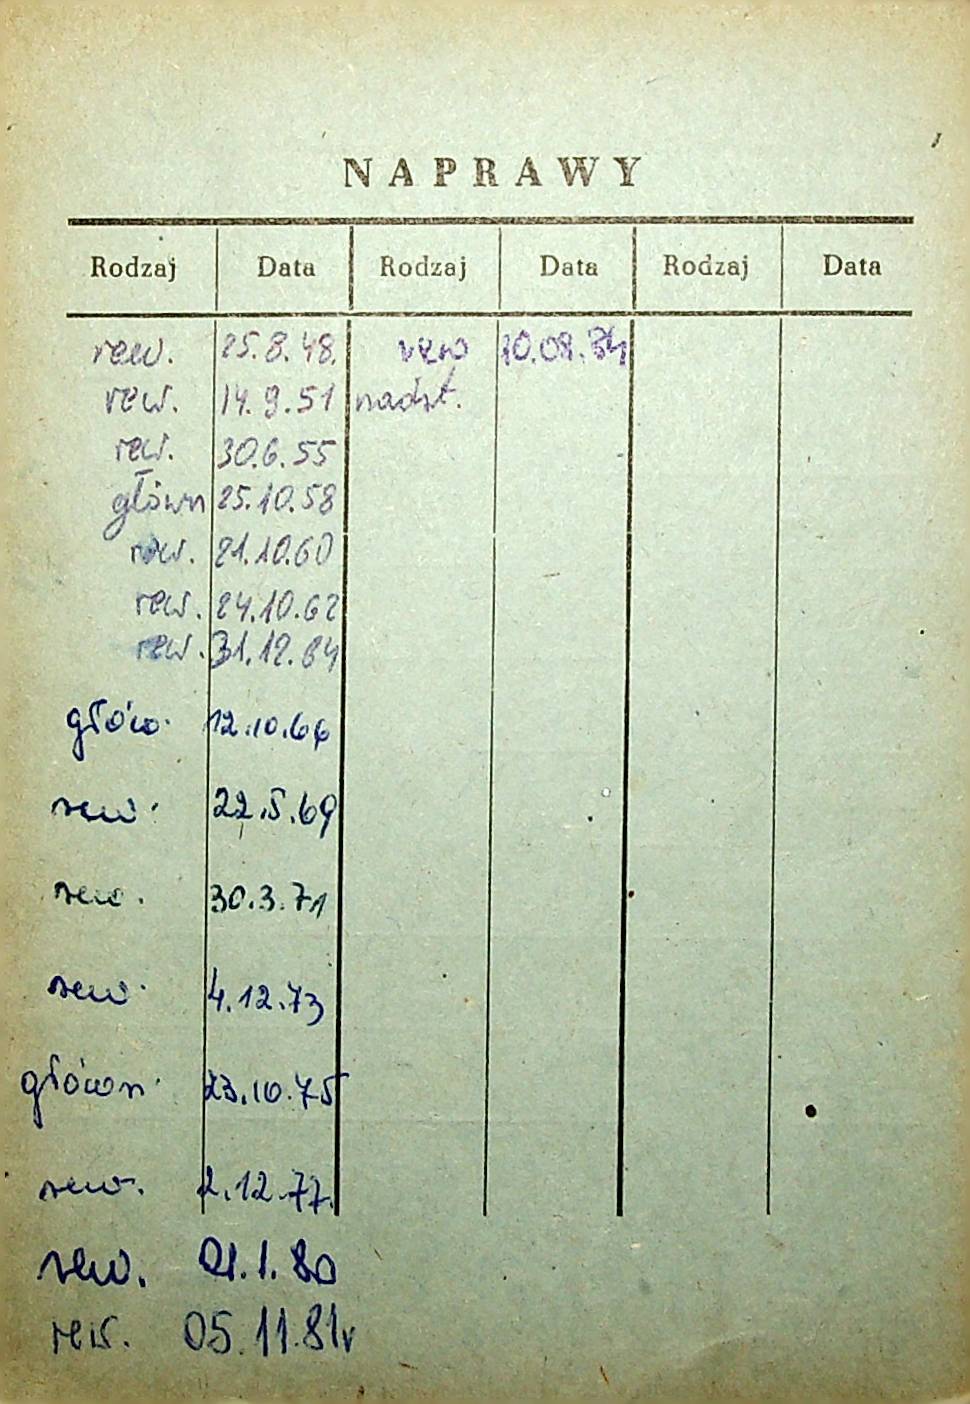 NAPRAWY
Rodzaj Data Rodzaj Data Rodzaj Data
rew. 25.8.48. rew 30.08.84
rew. 14.9.51 nadzt.
rew. 30.6.55
główn 25.10.58
rew. 21.10.60
rew. 24.10.62
rew. 31.12.64
głów. 12.10.66
rew. 22.5.69
rew. 30.3.71
rew. 4.12.73
główn. 23.10.75
rew. 2.12.77.
rew. 21.1.80
rew. 05.11.81r